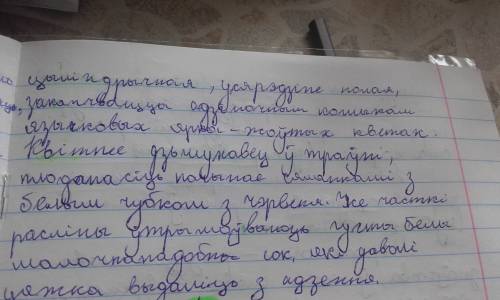 цыліндрычная, усярэдзіне полая,
заканчваецца адзіночным кошыкам
язычковых ярка-жоўтых кветак.
Квітнее дзьмухавец ў траўні,
пладаносіць пачынае сямянкамі з
белым чубком з чэрвеня. Усе часткі
расліны ўтрымоўваюць густы белы
малочнападобны сок, які даволі
цяжка выдаліць з адзення.